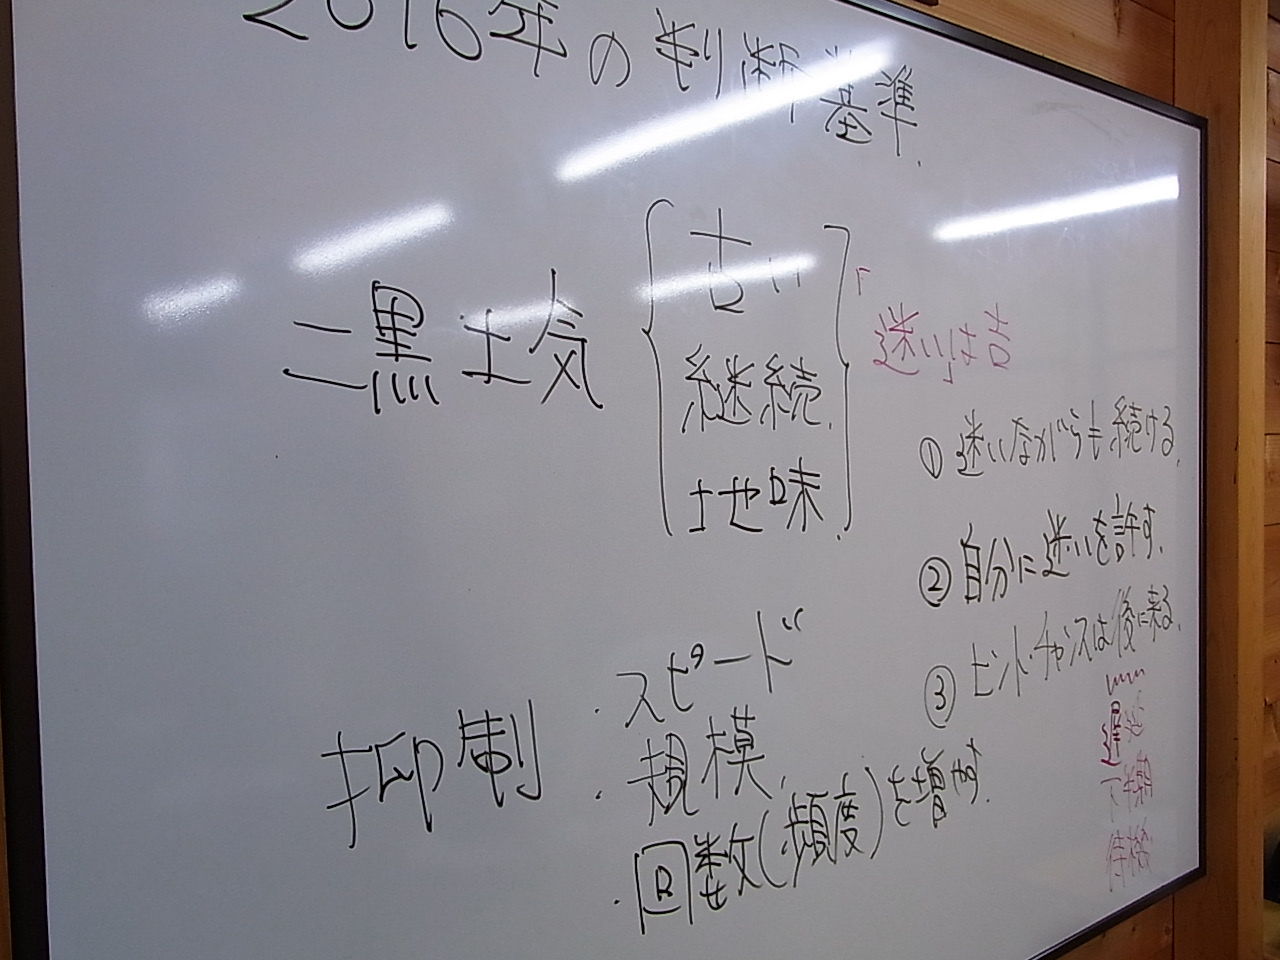 2016年の判断基準.
二黒土気
古い
継続.
地味
「迷い」は吉
① 迷いながらも続ける.
② 自分に迷いを許す.
③ ヒント・チャンスは後に来る.
下半期
待機
抑制
・スピード
・規模.
・回数(頻度)を増やす.